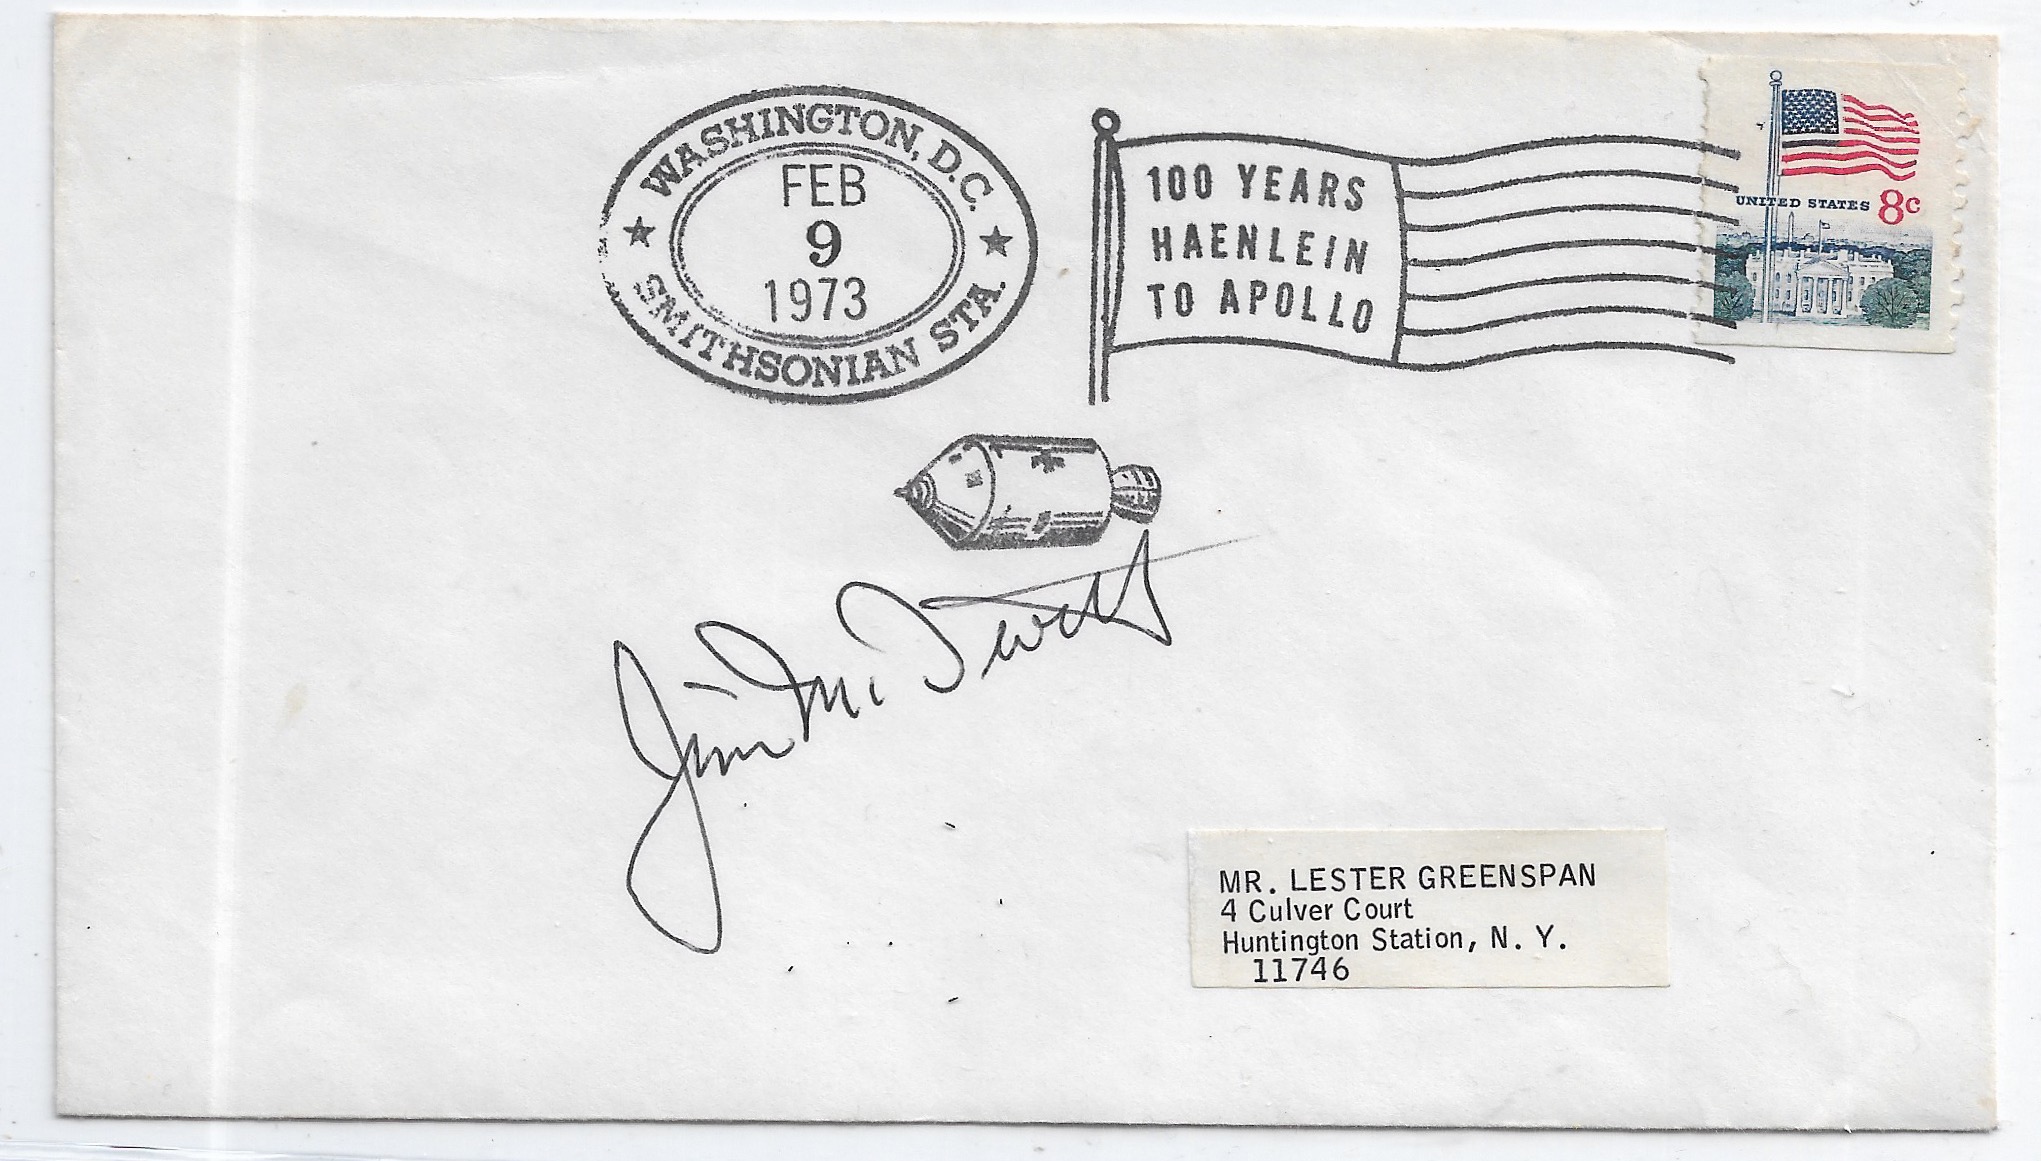 WASHINGTON, D.C.
FEB
9
1973
SMITHSONIAN STA.
100 YEARS
HAENLEIN
TO APOLLO
UNITED STATES 8c
Jim McDivitt
MR. LESTER GREENSPAN
4 Culver Court
Huntington Station, N. Y.
11746